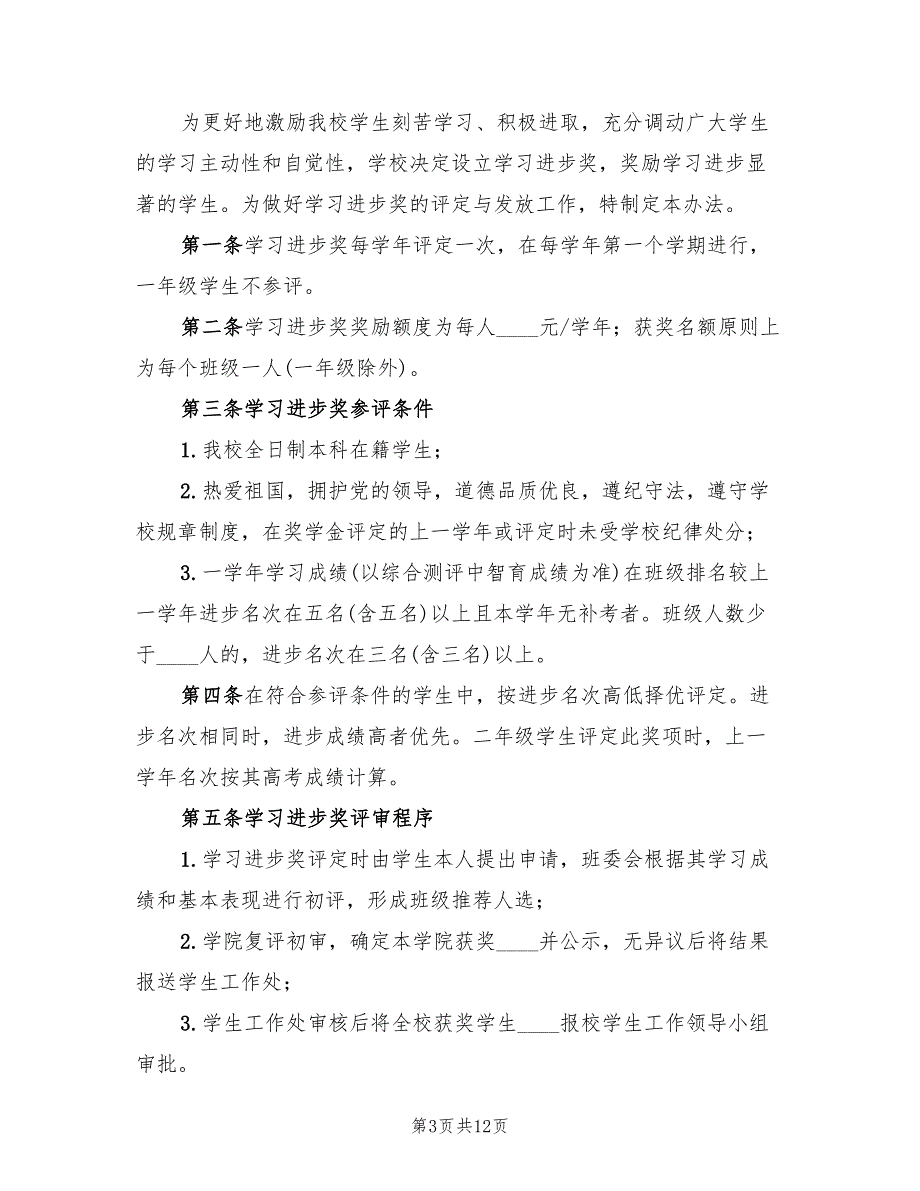 为更好地激励我校学生刻苦学习、积极进取，充分调动广大学生
的学习主动性和自觉性，学校决定设立学习进步奖，奖励学习进步显
著的学生。为做好学习进步奖的评定与发放工作，特制定本办法。
第一条学习进步奖每学年评定一次，在每学年第一个学期进行，
一年级学生不参评。
第二条学习进步奖奖励额度为每人____元/学年；获奖名额原则上
为每个班级一人(一年级除外)。
第三条学习进步奖参评条件
1.我校全日制本科在籍学生；
2.热爱祖国，拥护党的领导，道德品质优良，遵纪守法，遵守学
校规章制度，在奖学金评定的上一学年或评定时未受学校纪律处分；
3.一学年学习成绩(以综合测评中智育成绩为准)在班级排名较上
一学年进步名次在五名(含五名)以上且本学年无补考者。班级人数少
于____人的，进步名次在三名(含三名)以上。
第四条在符合参评条件的学生中，按进步名次高低择优评定。进
步名次相同时，进步成绩高者优先。二年级学生评定此奖项时，上一
学年名次按其高考成绩计算。
第五条学习进步奖评审程序
1.学习进步奖评定时由学生本人提出申请，班委会根据其学习成
绩和基本表现进行初评，形成班级推荐人选；
2.学院复评初审，确定本学院获奖____并公示，无异议后将结果
报送学生工作处；
3.学生工作处审核后将全校获奖学生____报校学生工作领导小组
审批。
第3页共12页